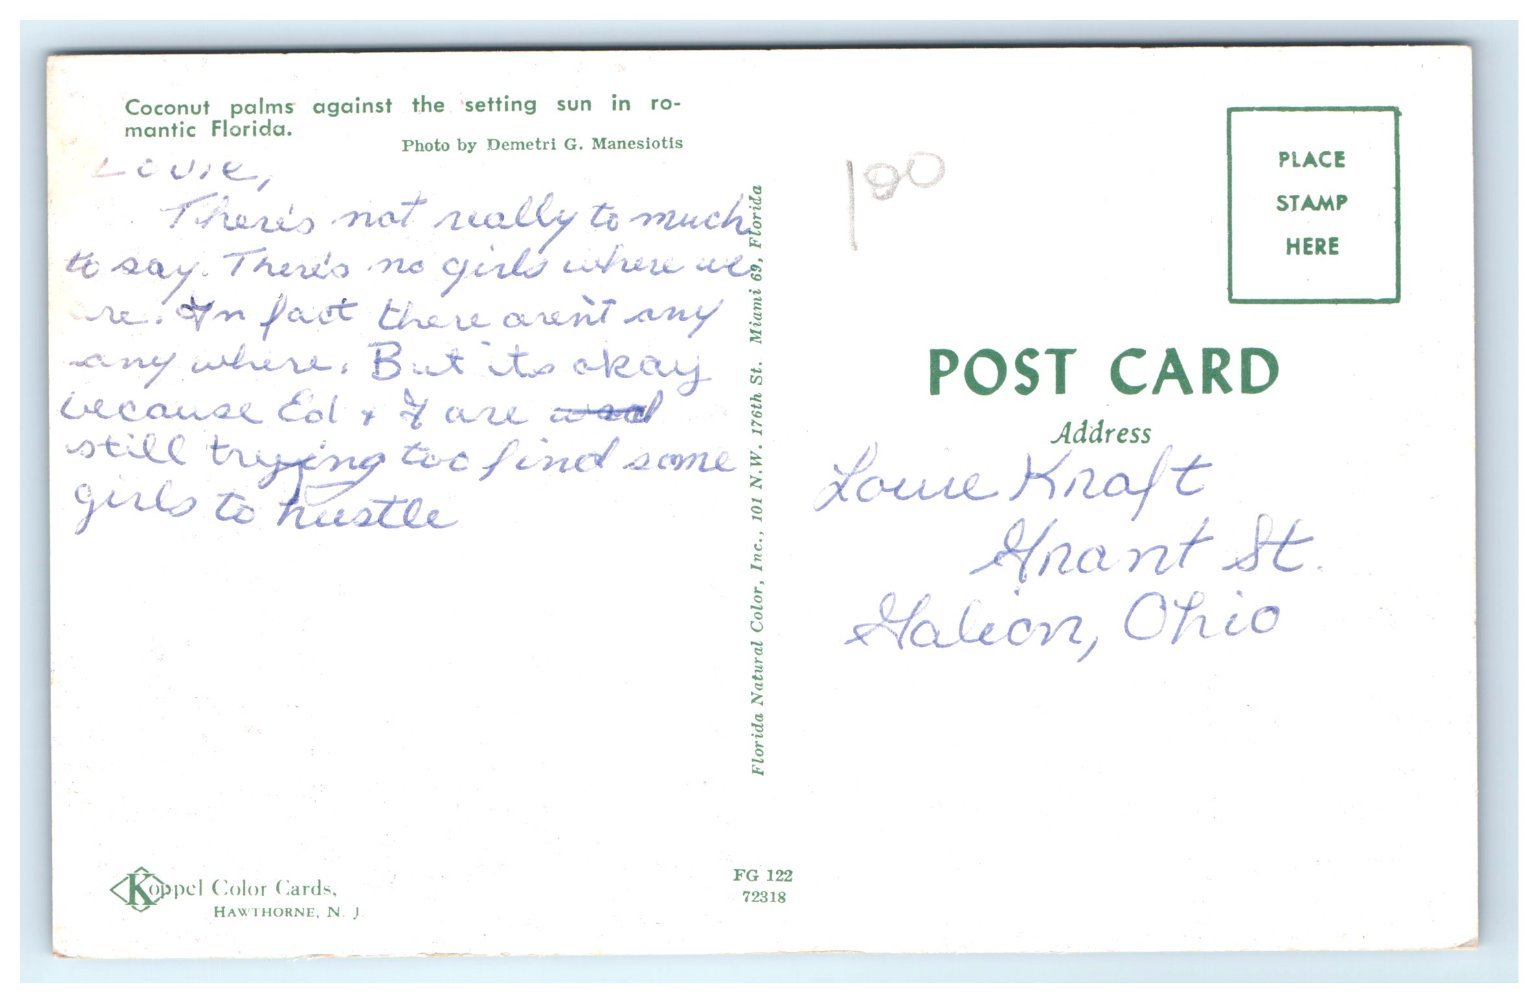 Coconut palms against the setting sun in ro-
mantic Florida.
Photo by Demetri G. Manesiotis
Louie,
There's not really to much
to say. There's no girls where we
are. In fact there aren't any
any where. But its okay
because Ed & I are
still trying too find some
girls to hustle
Florida Natural Color, Inc., 101 N.W. 176th St. Miami 69, Florida
Koppel Color Cards,
HAWTHORNE, N. J.
FG 122
72318
100
PLACE
STAMP
HERE
POST CARD
Address
Louie Kraft
Grant St.
Galion, Ohio